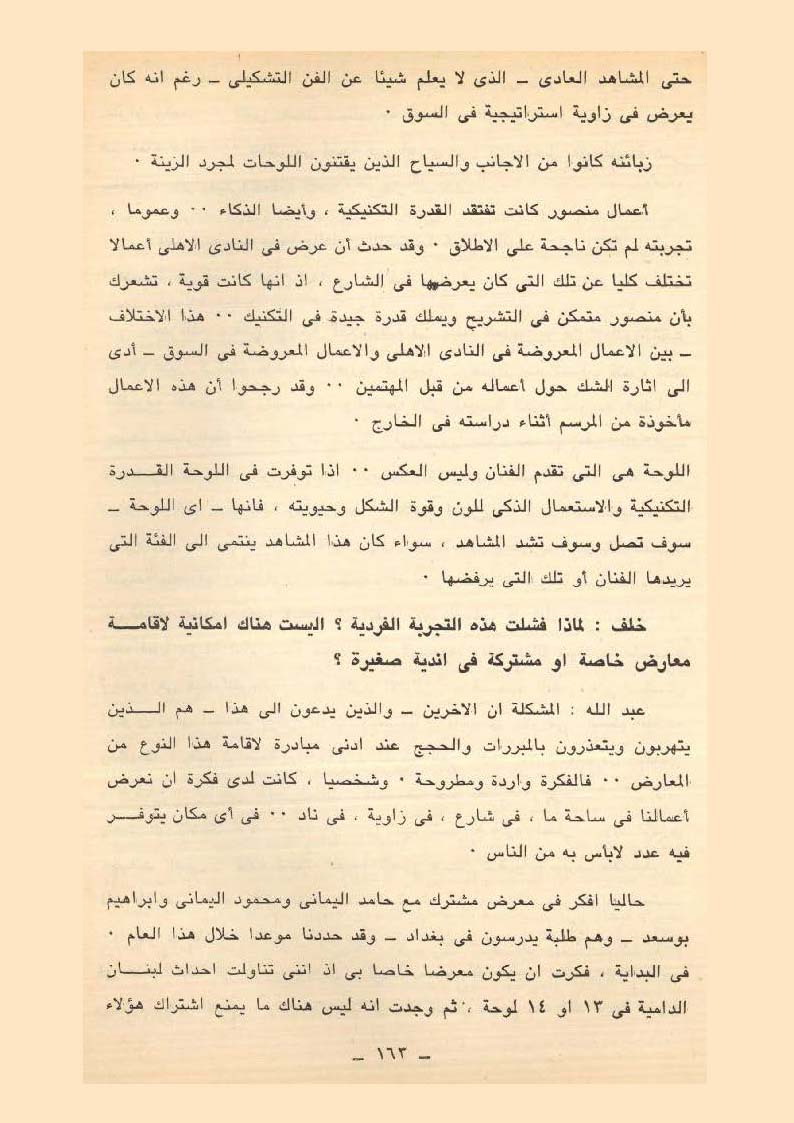 حتى المشاهد العادى ــ الذى لا يعلم شيئا عن الفن التشكيلى ــ رغم انه كان
يعرض فى زاوية استراتيجية فى السوق ٠
زبائنه كانوا من الاجانب والسياح الذين يقتنون اللوحات لمجرد الزينة ٠
أعمال منصور كانت تفتقد القدرة التكنيكية ، وأيضا الذكاء ٠٠ وعموما ،
تجربته لم تكن ناجحة على الاطلاق ٠ وقد حدث أن عرض فى النادى الاهلى أعمالا
تختلف كليا عن تلك التى كان يعرضها فى الشارع ، اذ انها كانت قوية ، تشعرك
بأن منصور متمكن فى التشريح ويملك قدرة جيدة فى التكنيك ٠٠ هذا الاختلاف
ــ بين الاعمال المعروضة فى النادى الاهلى والاعمال المعروضة فى السوق ــ أدى
الى اثارة الشك حول أعماله من قبل المهتمين ٠٠ وقد رجحوا أن هذه الاعمال
مأخوذة من المرسم أثناء دراسته فى الخارج ٠
اللوحة هى التى تقدم الفنان وليس العكس ٠٠ اذا توفرت فى اللوحة القـــدرة
التكنيكية والاستعمال الذكى للون وقوة الشكل وحيويته ، فانها ــ اى اللوحة ــ
سوف تصل وسوف تشد المشاهد ، سواء كان هذا المشاهد ينتمى الى الفئة التى
يريدها الفنان أو تلك التى يرفضها ٠
خلف : لماذا فشلت هذه التجربة الفردية ؟ اليست هناك امكانية لاقامـــة
معارض خاصة او مشتركة فى اندية صغيرة ؟
عبد الله : المشكلة ان الاخرين ــ والذين يدعون الى هذا ــ هم الـــذين
يتهربون ويتعذرون بالمبررات والحجج عند ادنى مبادرة لاقامة هذا النوع من
المعارض ٠٠ فالفكرة واردة ومطروحة ٠ وشخصيا ، كانت لدى فكرة ان نعرض
أعمالنا فى ساحة ما ، فى شارع ، فى زاوية ، فى ناد ٠٠ فى أى مكان يتوفـــر
فيه عدد لابأس به من الناس ٠
حاليا افكر فى معرض مشترك مع حامد اليمانى ومحمود اليمانى وابراهيم
بوسعد ــ وهم طلبة يدرسون فى بغداد ــ وقد حددنا موعدا خلال هذا العام ٠
فى البداية ، فكرت ان يكون معرضا خاصا بى اذ اننى تناولت احداث لبنـــان
الدامية فى ١٣ او ١٤ لوحة ، ثم وجدت انه ليس هناك ما يمنع اشتراك هؤلاء
ــ ١٦٣ ــ